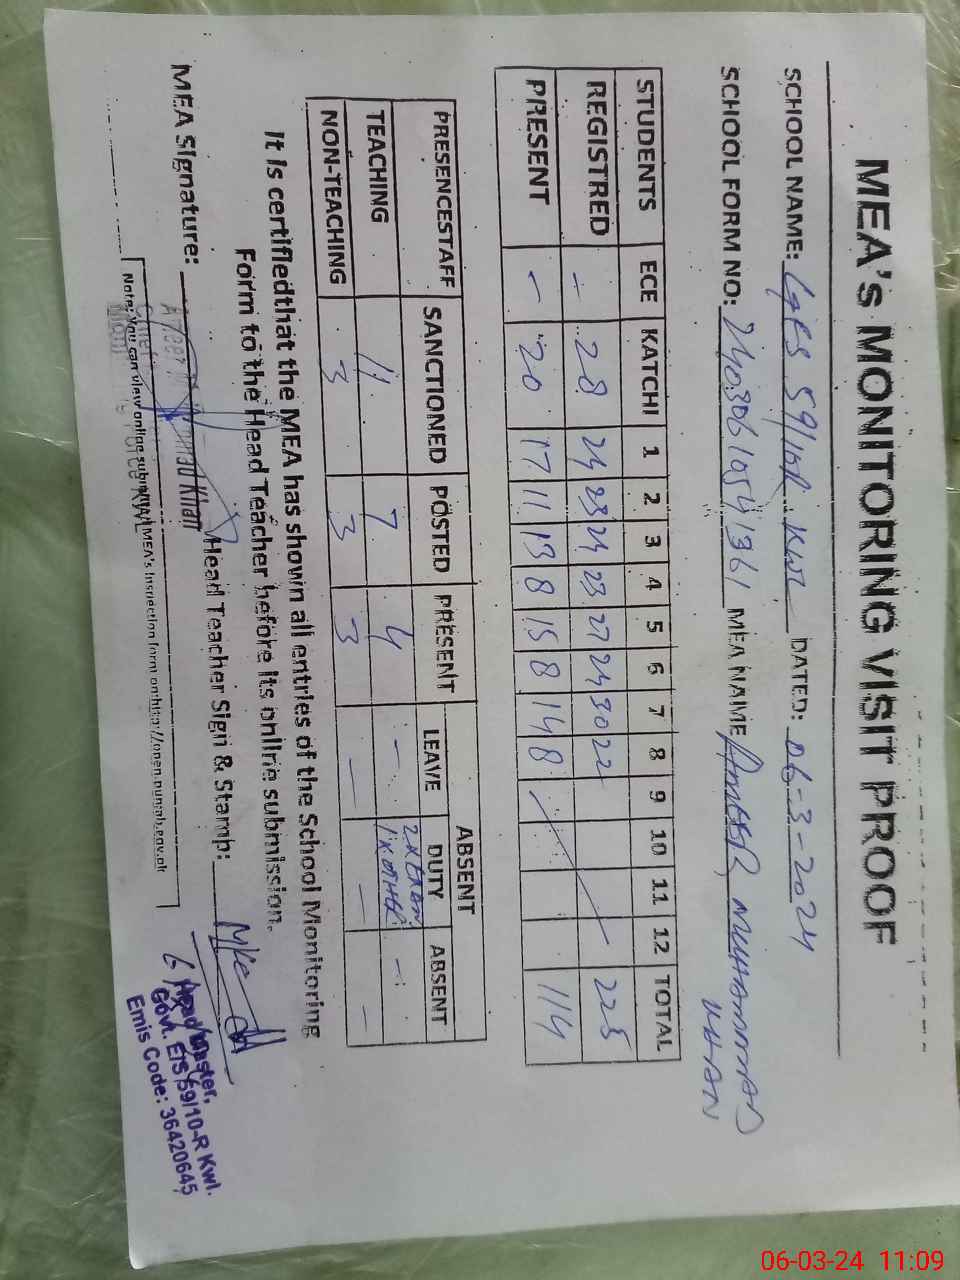 MEA's MONITORING VISIT PROOF
SCHOOL NAME: GES 59/10R KWL DATED: 06-3-2024
SCHOOL FORM NO: 24030610541361 MEA NAME AMEER MUHAMMAD
KHAN
STUDENTS ECE KATCHI 1 2 3 4 5 6 7 8 9 10 11 12 TOTAL
REGISTRED - 28 24 23 24 23 27 24 30 22 225
PRESENT - 20 17 11 13 8 15 8 14 8 114
PRESENCESTAFF SANCTIONED POSTED PRESENT ABSENT
LEAVE DUTY ABSENT
TEACHING 11 7 4 - 2X 1X OTHER -
NON-TEACHING 3 3 3 - - -
It is certifiedthat the MEA has shown all entries of the School Monitoring
Form to the Head Teacher before its online submission.
MEA Signature: Head Teacher Sign & Stamp:
Khan
Note: You can view online submitted MEA's Inspection form on http://open.punjab.gov.pk
Head Master,
Govt. E/S 59/10-R Kwl.
Emis Code: 36420645
06-03-24 11:09